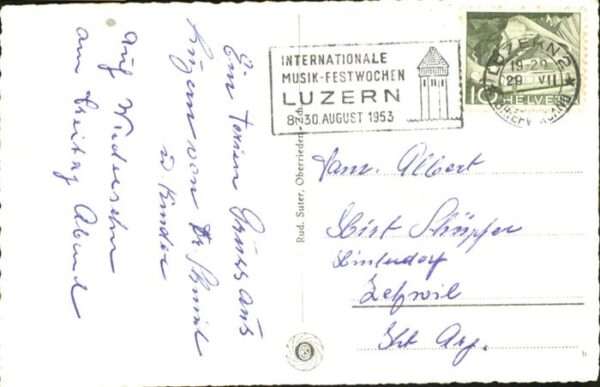 Ein Ferien Gruss aus
Luzern von Dr Schmid
u Kinder
Auf Wiedersehn
am Freitag Abend
INTERNATIONALE
MUSIK-FESTWOCHEN
LUZERN
8.-30. AUGUST 1953
LUZERN 2
19-20
29. VII
10 HELVETIA
Rud. Suter, Oberrieden-Zch.
Fam. Albert
Hirt
Hinterdorf
Zetzwil
Kt Arg.